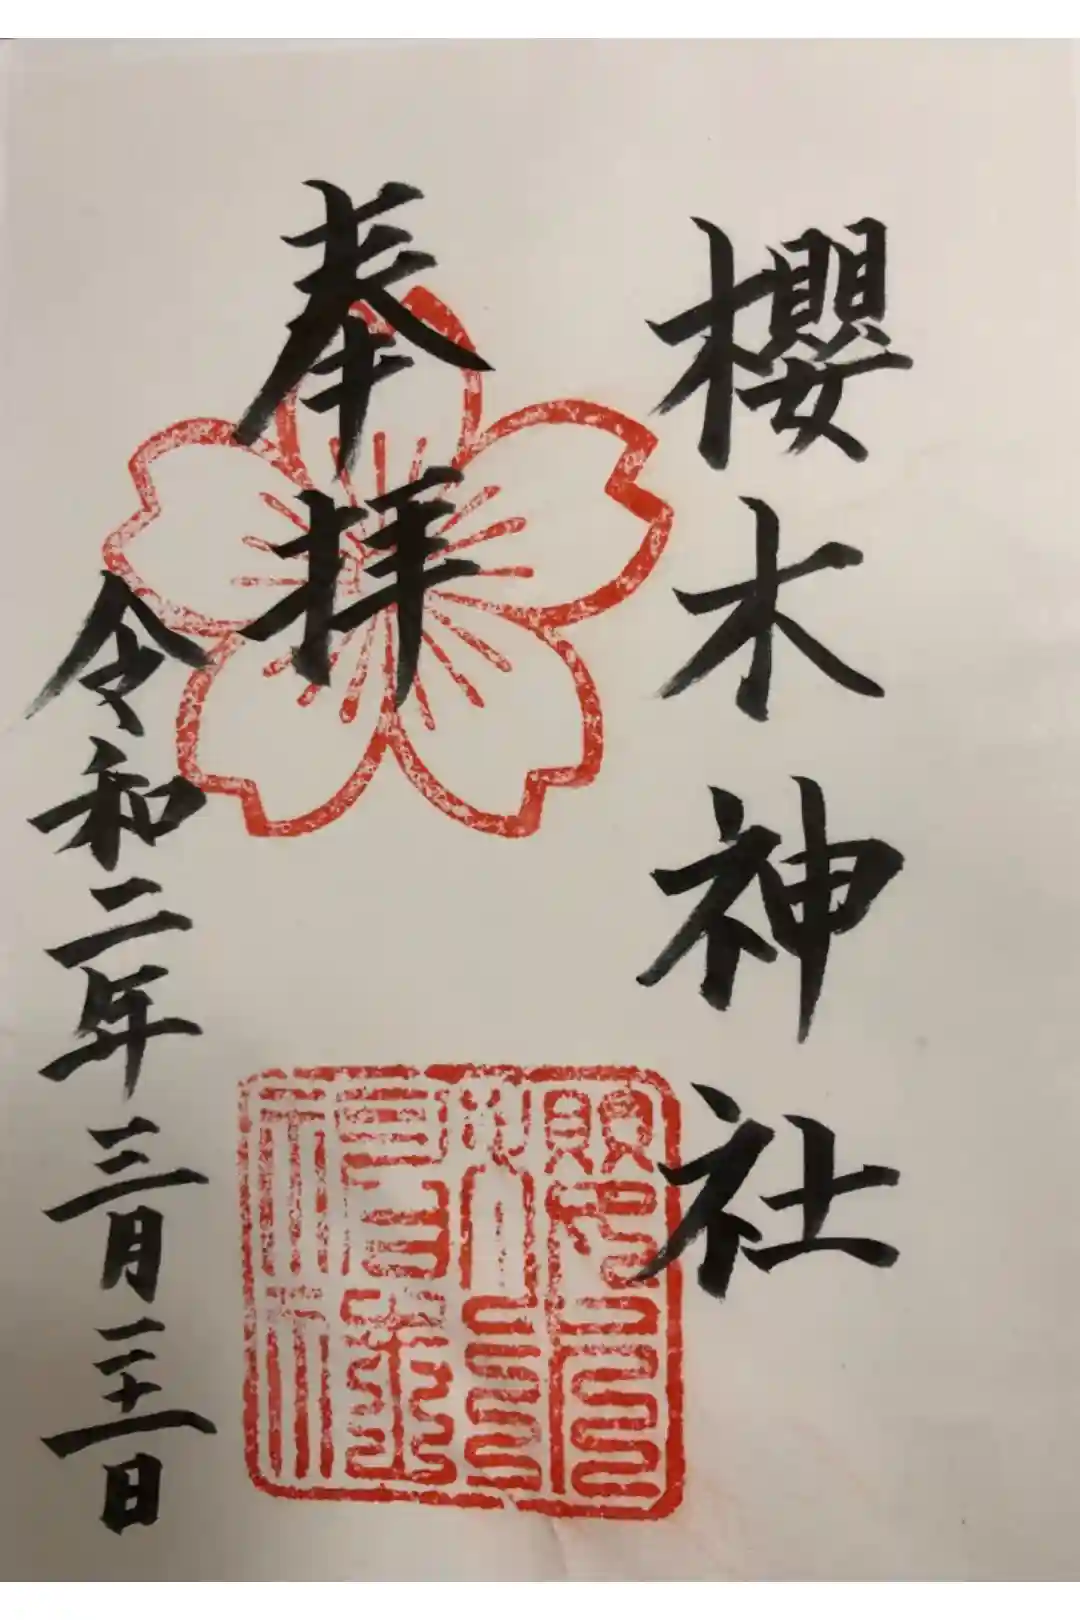 櫻木神社
奉拝
令和二年三月二十一日